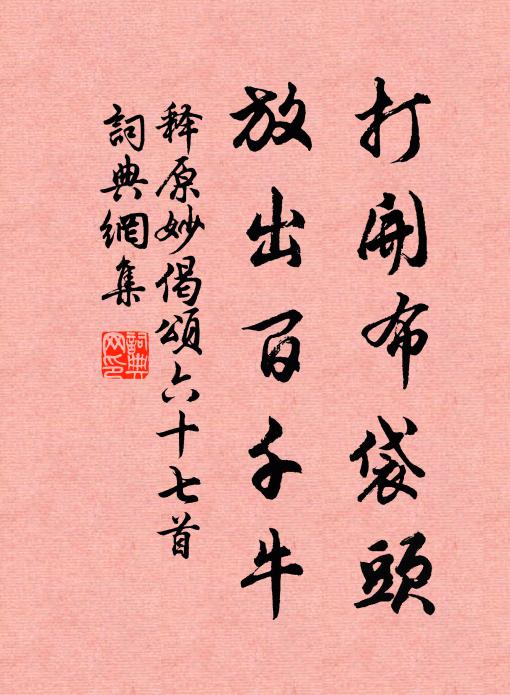 打開布袋頭
放出百千牛
释原妙偈頌六十七首
詞典網集
詞典网印